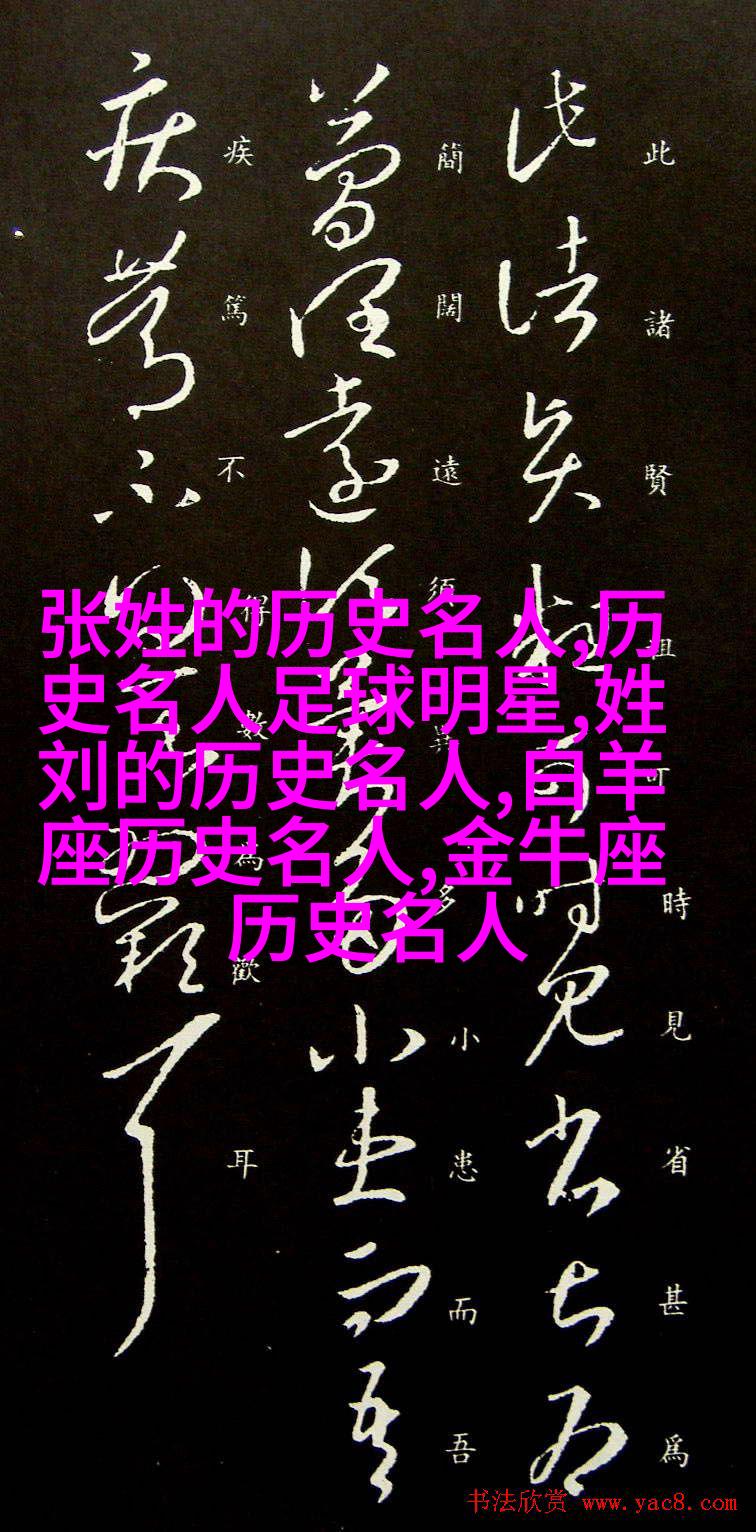 此諸賢粗可時見省甚爲
簡闊遠須異多小患而吾
疾篤不得數為歡耳
张姓的历史名人,历
史名人足球明星,姓
刘的历史名人,白羊
座历史名人,金牛座
历史名人
书法欣赏 www.yac8.com